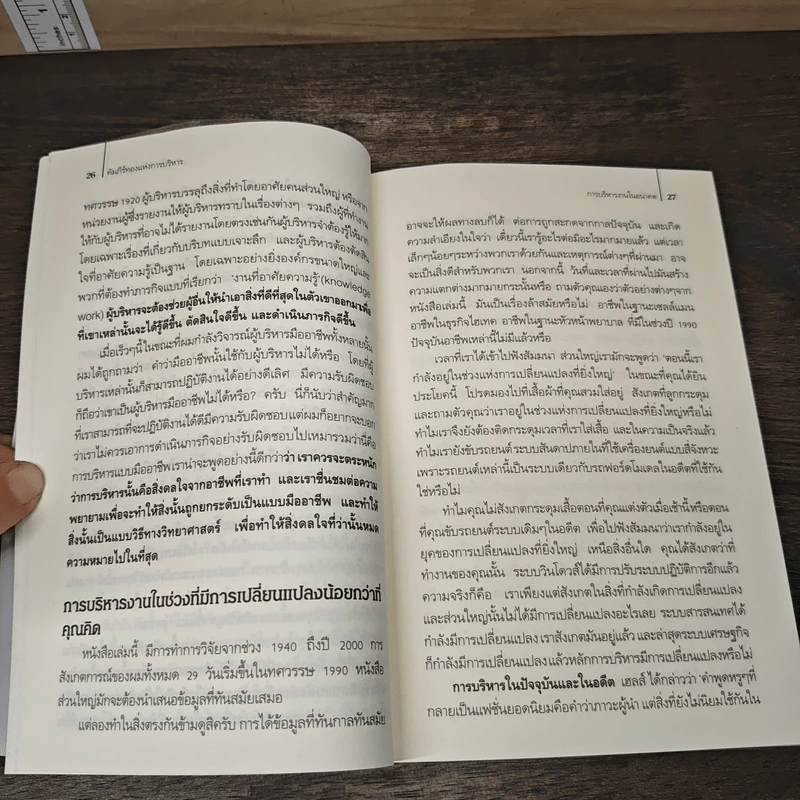 1
inches
1
26 คัมภีร์ทองแห่งการบริหาร
ทศวรรษ 1920 ผู้บริหารบรรลุถึงสิ่งที่ทำโดยอาศัยคนส่วนใหญ่ หรือจาก
หน่วยงานผู้ซึ่งรายงานให้ผู้บริหารทราบในเรื่องต่างๆ รวมถึงผู้ที่ทำงาน
ให้กับผู้บริหารที่อาจไม่ได้รายงานโดยตรงเช่นกันผู้บริหารจำต้องรู้ให้มาก
โดยเฉพาะเรื่องที่เกี่ยวกับบริบทแบบเจาะลึก และผู้บริหารต้องตัดสิน
ใจที่อาศัยความรู้เป็นฐาน โดยเฉพาะอย่างยิ่งองค์กรขนาดใหญ่และ
พวกที่ต้องทำภารกิจแบบที่เรียกว่า 'งานที่อาศัยความรู้'(knowledge
work) ผู้บริหารจะต้องช่วยผู้อื่นให้นำเอาสิ่งที่ดีที่สุดในตัวเขาออกมาเพื่อ
ที่เขาเหล่านั้นจะได้รู้ดีขึ้น ตัดสินใจดีขึ้น และดำเนินภารกิจดีขึ้น
เมื่อเร็วๆนี้ในขณะที่ผมกำลังวิจารณ์ผู้บริหารมืออาชีพทั้งหลายนั้น
ผมได้ถูกถามว่า คำว่ามืออาชีพนั้นใช้กับผู้บริหารไม่ได้หรือ โดยที่ผู้
บริหารเหล่านั้นก็สามารถปฏิบัติงานได้อย่างดีเลิศ มีความรับผิดชอบ
ก็ถือว่าเขาเป็นผู้บริหารมืออาชีพไม่ได้หรือ? ครับ นี่ก็นับว่าสำคัญมาก
ที่เราสามารถที่จะปฏิบัติงานได้ดีมีความรับผิดชอบแต่ผมก็อยากจะบอก
ว่าเราไม่ควรเอาการดำเนินภารกิจอย่างรับผิดชอบไปเหมารวมว่านี่คือ
การบริหารแบบมืออาชีพ เราน่าจะพูดอย่างนี้ดีกว่าว่า เราควรจะตระหนัก
ว่าการบริหารนั้นคือสิ่งดลใจจากอาชีพที่เราทำ และเราชื่นชมต่อความ
พยายามเพื่อจะทำให้สิ่งนั้นถูกยกระดับเป็นแบบมืออาชีพ และทำให้
สิ่งนั้นเป็นแบบวิธีทางวิทยาศาสตร์ เพื่อทำให้สิ่งดลใจที่ว่านั้นหมด
ความหมายไปในที่สุด
การบริหารงานในช่วงที่มีการเปลี่ยนแปลงน้อยกว่าที่
คุณคิด
หนังสือเล่มนี้ มีการทำการวิจัยจากช่วง 1940 ถึงปี 2000 การ
สังเกตการณ์ของผมทั้งหมด 29 วันเริ่มขึ้นในทศวรรษ 1990 หนังสือ
ส่วนใหญ่มักจะต้องนำเสนอข้อมูลที่ทันสมัยเสมอ
แต่ลองทำในสิ่งตรงกันข้ามดูสิครับ การได้ข้อมูลที่ทันกาลทันสมัย
การบริหารงานในอนาคต 27
อาจจะให้ผลทางลบก็ได้ ต่อการถูกสะกดจากกาลปัจจุบัน และเกิด
ความลำเอียงในใจว่า เดี๋ยวนี้เรารู้อะไรต่อมิอะไรมากมายแล้ว แต่เวลา
เล็กๆน้อยๆระหว่างพวกเราด้วยกันและเหตุการณ์ต่างๆที่ผ่านมา อาจ
จะเป็นสิ่งดีสำหรับพวกเรา นอกจากนี้ วันที่และเวลาที่ผ่านไปมันสร้าง
ความแตกต่างมากมายกระนั้นหรือ ถามตัวคุณเองว่าตัวอย่างต่างๆจาก
หนังสือเล่มนี้ มันเป็นเรื่องล้าสมัยหรือไม่ อาชีพในฐานะเซลส์แมน
อาชีพในธุรกิจไฮเทค อาชีพในฐานะหัวหน้าพยาบาล ที่มีในช่วงปี 1990
ปัจจุบันอาชีพเหล่านี้ไม่มีแล้วหรือ
เวลาที่เราได้เข้าไปฟังสัมมนา ส่วนใหญ่เรามักจะพูดว่า 'ตอนนี้เรา
กำลังอยู่ในช่วงแห่งการเปลี่ยนแปลงที่ยิ่งใหญ่' ในขณะที่คุณได้ยิน
ประโยคนี้ โปรดมองไปที่เสื้อผ้าที่คุณสวมใส่อยู่ สังเกตที่ลูกกระดุม
และถามตัวคุณว่าเราอยู่ในช่วงแห่งการเปลี่ยนแปลงที่ยิ่งใหญ่หรือไม่
ทำไมเราจึงยังต้องติดกระดุมเวลาที่เราใส่เสื้อ และในความเป็นจริงแล้ว
ทำไมเรายังขับรถยนต์ ระบบสันดาปภายในที่ใช้เครื่องยนต์แบบสี่จังหวะ
เพราะรถยนต์เหล่านี้เป็นระบบเดียวกับรถฟอร์ดโมเดลในอดีตที่ใช้กัน
ใช่หรือไม่
ทำไมคุณไม่สังเกตกระดุมเสื้อตอนที่คุณแต่งตัวเมื่อเช้านี้หรือตอน
ที่คุณขับรถยนต์ระบบเดิมๆในอดีต เพื่อไปฟังสัมมนาว่าเรากำลังอยู่ใน
ยุคของการเปลี่ยนแปลงที่ยิ่งใหญ่ เหนือสิ่งอื่นใด คุณได้สังเกตว่าที่
ทำงานของคุณนั้น ระบบวินโดวส์ได้มีการปรับระบบปฏิบัติการอีกแล้ว
ความจริงก็คือ เราเพียงแต่สังเกตในสิ่งที่กำลังเกิดการเปลี่ยนแปลง
และส่วนใหญ่นั้นไม่ได้มีการเปลี่ยนแปลงอะไรเลย ระบบสารสนเทศได้
กำลังมีการเปลี่ยนแปลง เราสังเกตมันอยู่แล้ว และล่าสุดระบบเศรษฐกิจ
ก็กำลังมีการเปลี่ยนแปลง แล้วหลักการบริหารมีการเปลี่ยนแปลงหรือไม่
การบริหารในปัจจุบันและในอดีต เฮลส์ ได้กล่าวว่า 'คำพูดหรูๆที่
กลายเป็นแฟชั่นยอดนิยมคือคำว่าภาวะผู้นำ แต่สิ่งที่ยังไม่นิยมใช้กันใน